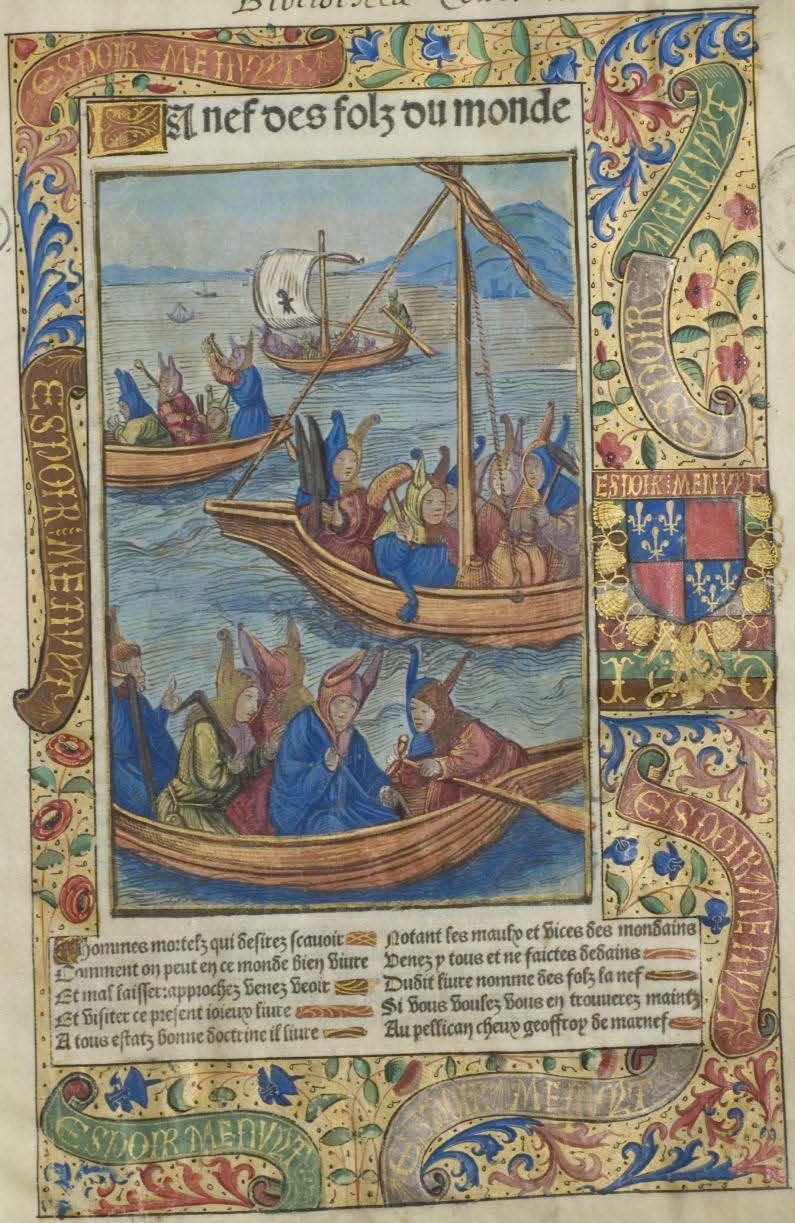 La nef des folz du monde
ESPOIR MENVLT
MENVLT
ESPOIR
ESPOIR MENVLT
ESPOIR MENVLT
I O
ESPOIR MENVLT
Hommes mortelz qui desirez scauoir
Comment on peut en ce monde bien viure
Et mal laisser: approchez venez veoir
Et visiter ce present ioieux liure
A tous estatz bonne doctrine il liure
Notant les maulx et vices des mondains
Venez y tous et ne faictes dedains
Dudit liure nomme des folz la nef
Si vous voulez vous en trouuerez maintz
Au pellican cheux geoffroy de marnef
ESPOIR MENVLT
ESPOIR MENVLT